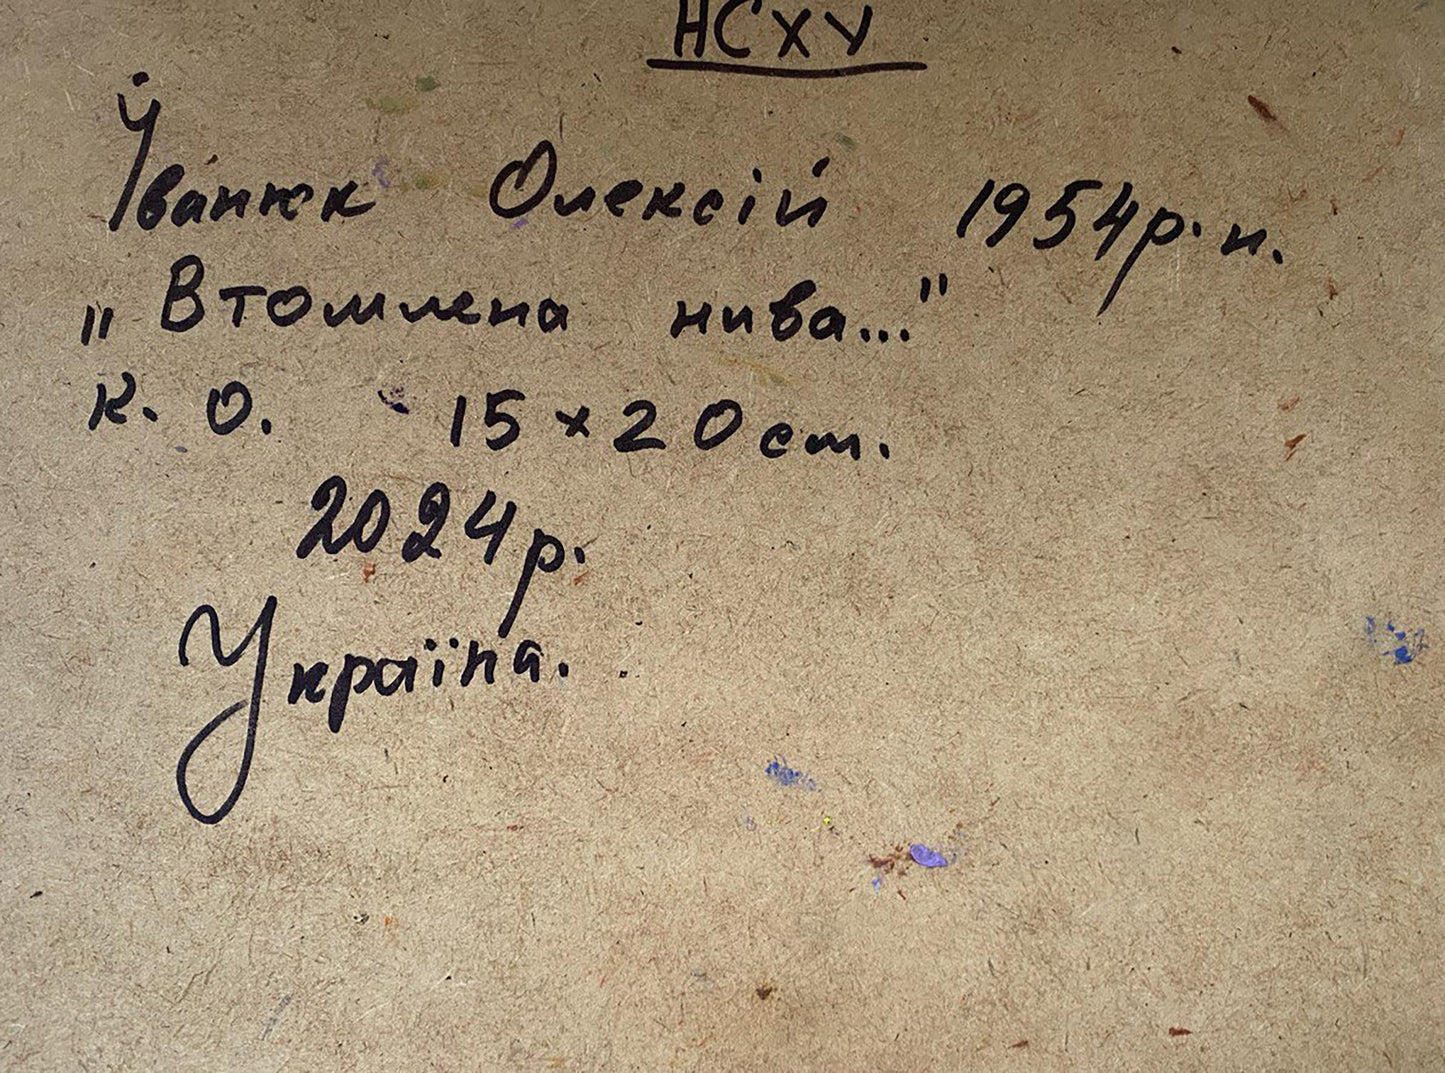 НСХУ
Іванюк Олексій 1954р.н.
„Втомлена нива..."
к. о. 15×20см.
2024р.
Україна.